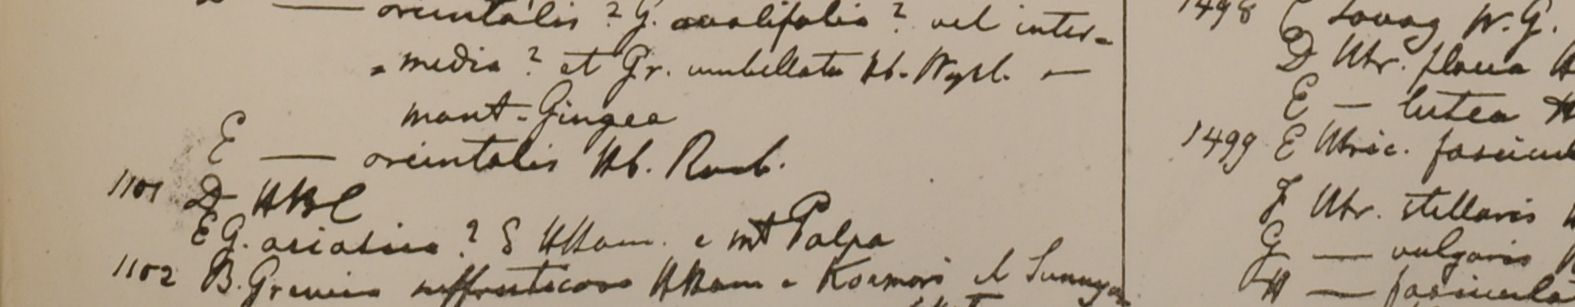 — orientalis ? G. ovalifolia ? vel inter-
- media ? et Gr. umbellata Hb. Wight. —
mont. Gingee
E — orientalis Hb. Roxb.
1101 D HBC
E G. asiatica ? § HHam. e mt Palpa
1102 B. Grewia suffruticosa HHam e Koemori et
1498 W. G.
D Utr. flava H
E — lutea H
1499 E Utric. fascicul
F Utr. stellaris H
G — vulgaris
H — fascicula